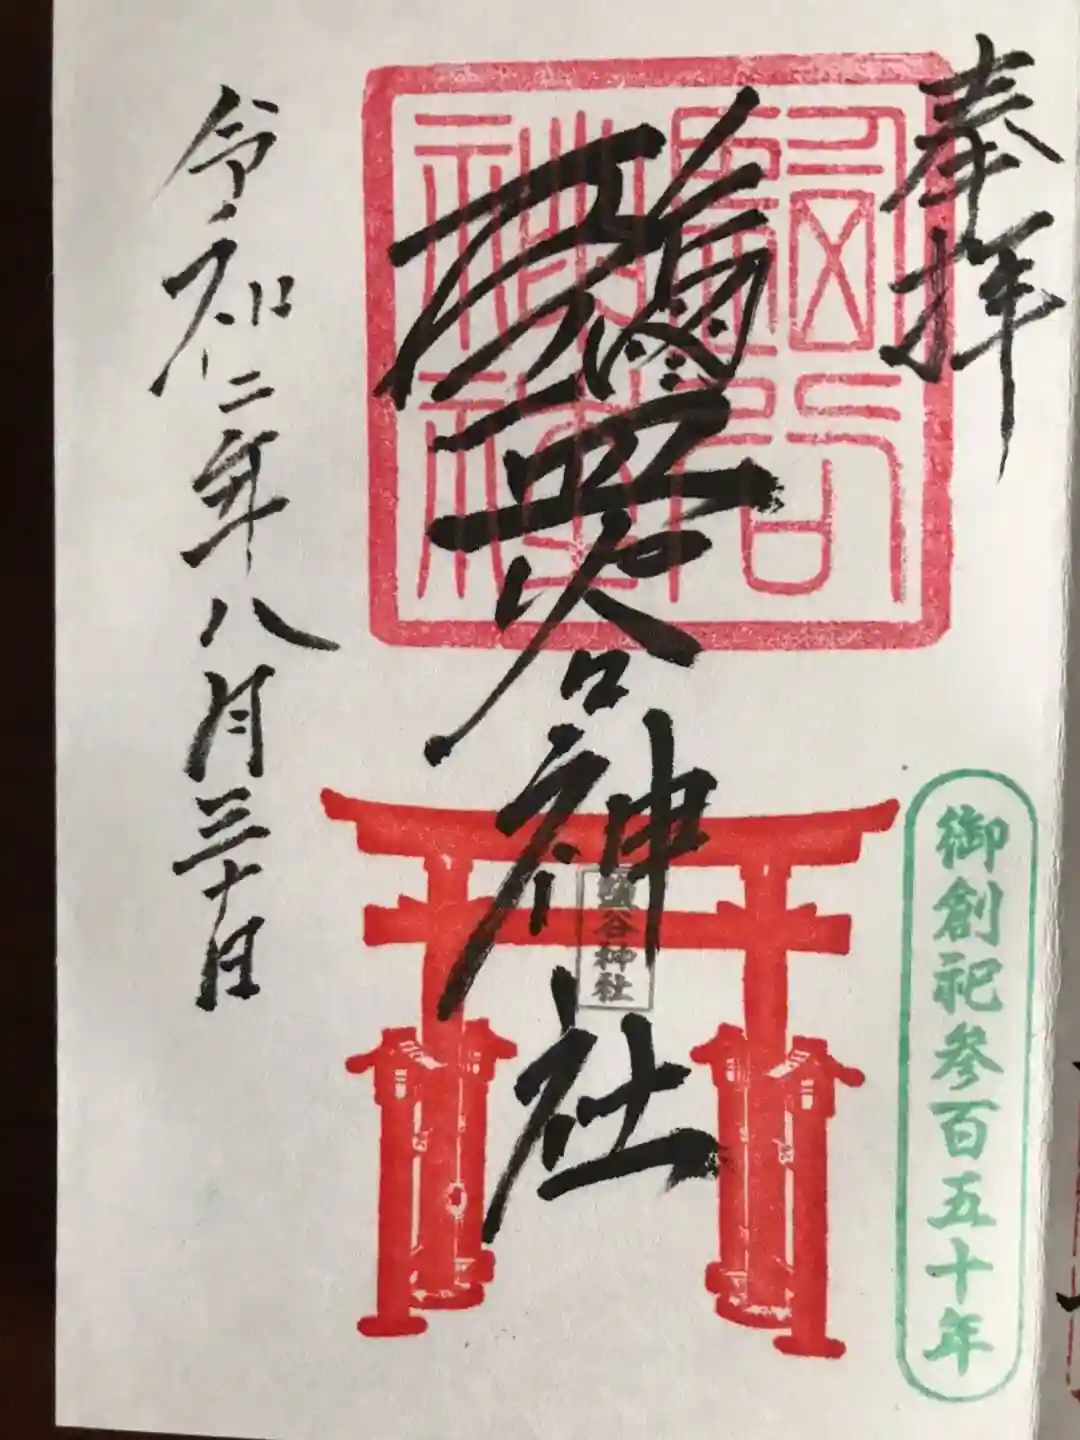 奉拝
鹽谷神社
令和二年八月三十日
鹽谷神社
御創祀参百五十年